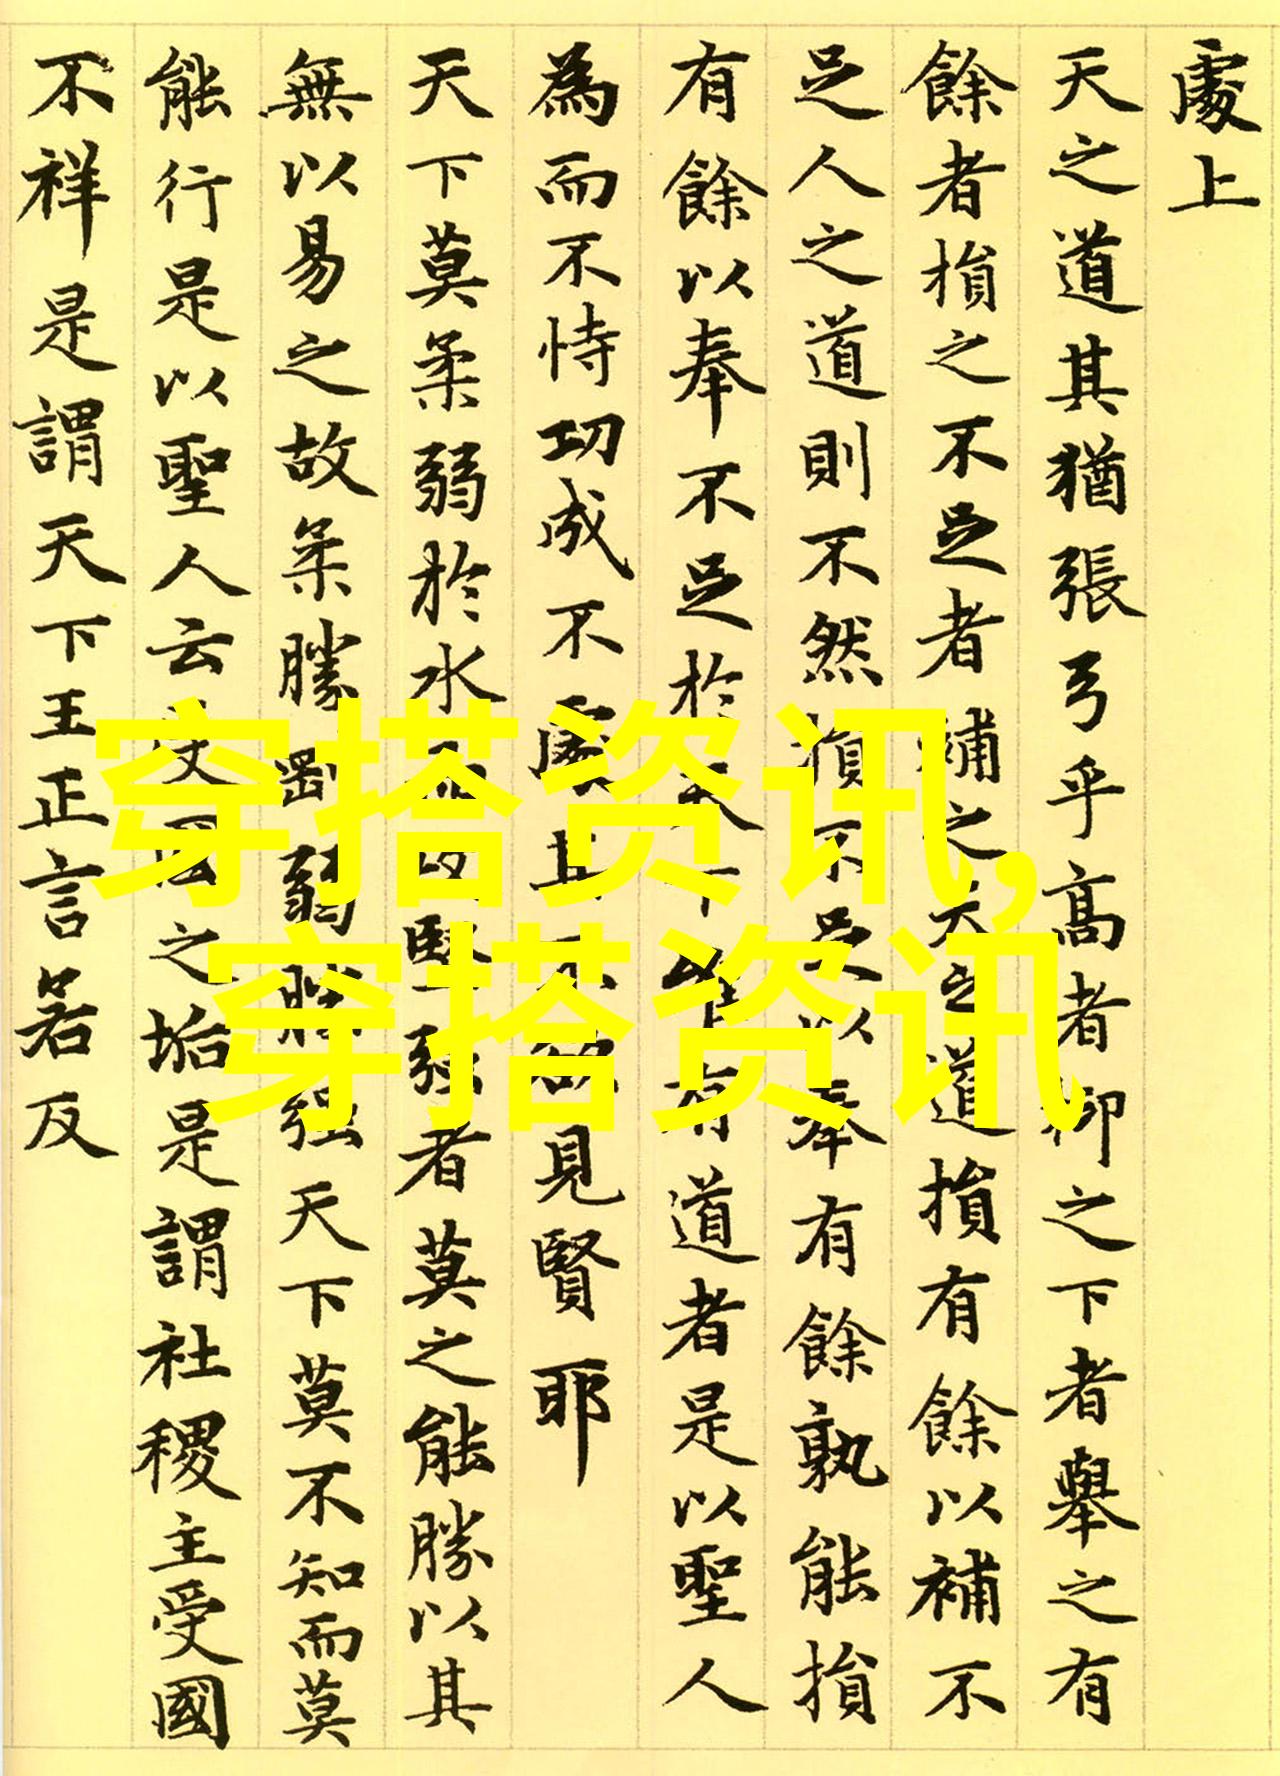 處上
天之道其猶張弓乎高者抑之下者舉之有
餘者損之不足者補之天之道損有餘以補不
足人之道則不然損不足以奉有餘孰能損
有餘以奉不足於天下唯有道者是以聖人
為而不恃功成不處其不欲見賢耶
天下莫柔弱於水而攻堅強者莫之能勝以其
無以易之故柔勝剛弱勝強天下莫不知而莫
能行是以聖人云受國之垢是謂社稷主受國
不祥是謂天下王正言若反
穿搭资讯,
穿搭资讯